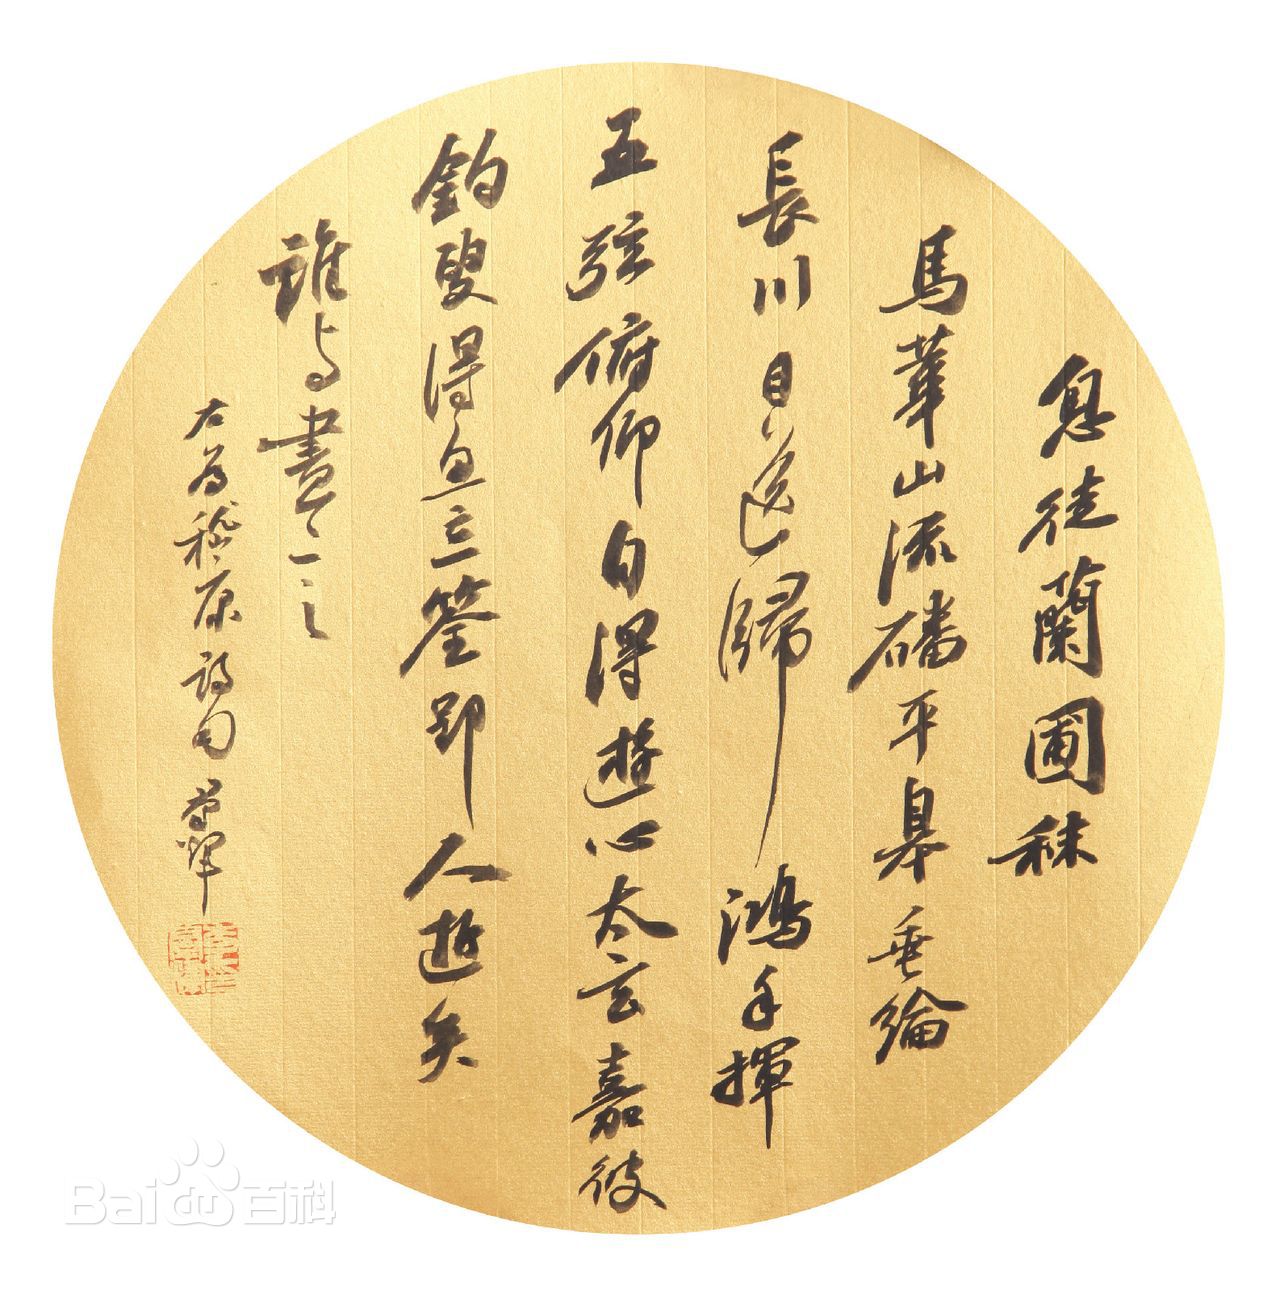 息徒蘭圃秣
馬華山流磻平皋垂綸
長川目送歸鴻手揮
五弦俯仰自得遊心太玄嘉彼
釣叟得魚忘筌郢人逝矣
誰与盡言之
右为嵇康詩句
Bai 百科